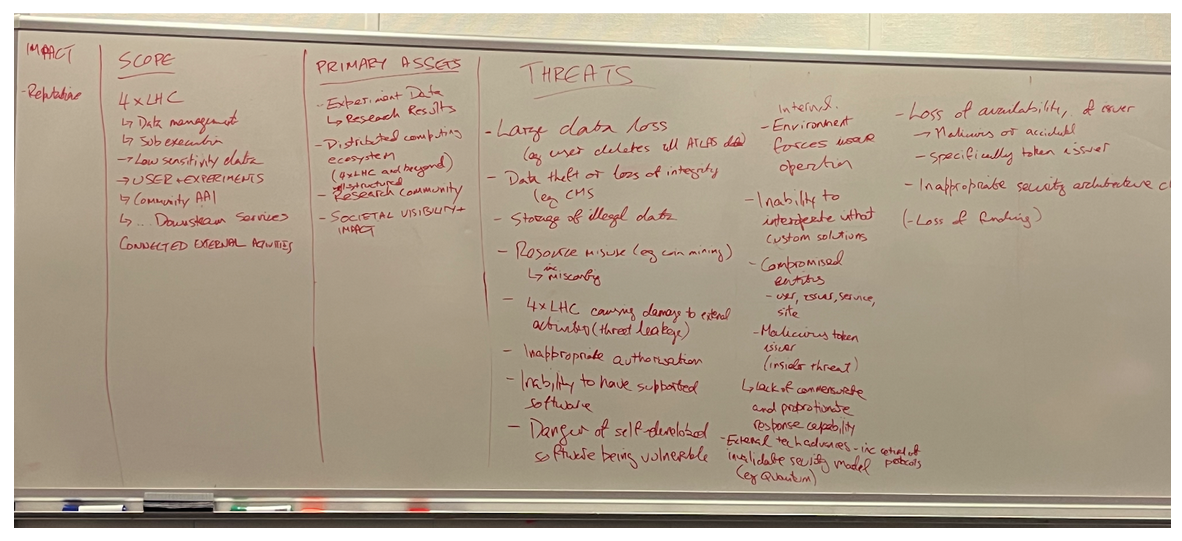 IMPACT
- Reputation
SCOPE
4xLHC
↳ Data management
↳ Job execution
→ Low sensitivity data
→ USER + EXPERIMENTS
↳ Community AAI
↳ ... Downstream Services
CONNECTED EXTERNAL ACTIVITIES
PRIMARY ASSETS
- Experiment Data
↳ Research Results
- Distributed computing
ecosystem
(4xLHC and beyond)
- Research Community
- SOCIETAL VISIBILITY +
IMPACT
THREATS
- Large data loss
(eg user deletes all ATLAS data)
- Data theft or loss of integrity
(eg CMS)
- Storage of illegal data
- Resource misuse (eg coin mining)
↳ inc misconfig
- 4xLHC causing damage to external
activities (threat leakage)
- Inappropriate authorisation
- Inability to have supported
software
- Danger of self-developed
software being vulnerable
Internal.
- Environment
forces
operation
- Inability to
interoperate without
custom solutions
- Compromised
entities
- user, issuer, service,
site
- Malicious token
issuer
(insider threat)
↳ lack of commensurate
and proportionate
response capability
- External tech advances - inc of
invalidate security model protocols
(eg Quantum)
- Loss of availability, of issuer
→ Malicious or accidental
- specifically token issuer
- Inappropriate security architecture
(- Loss of funding)